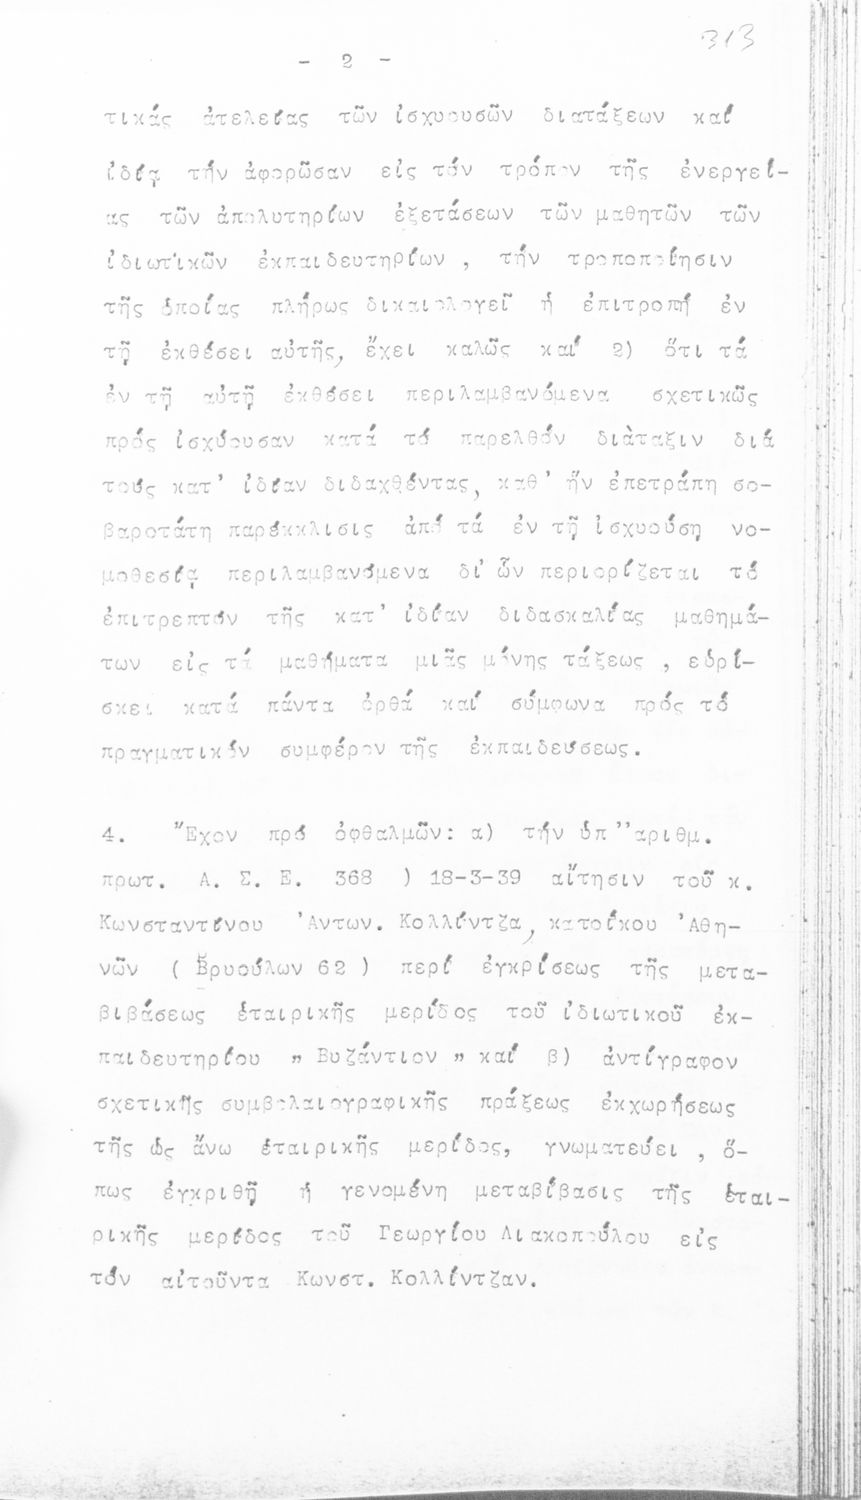 313
- 2 -
τικάς ἀτελείας τῶν ἰσχυουσῶν διατάξεων καί
ἰδίᾳ τήν ἀφορῶσαν εἰς τόν τρόπον τῆς ἐνεργεί-
ας τῶν ἀπολυτηρίων ἐξετάσεων τῶν μαθητῶν τῶν
ἰδιωτικῶν ἐκπαιδευτηρίων , τήν τροποποίησιν
τῆς ὁποίας πλήρως δικαιολογεῖ ἡ ἐπιτροπή ἐν
τῇ ἐκθέσει αὐτῆς, ἔχει καλῶς καί 2) ὅτι τά
ἐν τῇ αὐτῇ ἐκθέσει περιλαμβανόμενα σχετικῶς
πρός ἰσχύουσαν κατά τό παρελθόν διὰταξιν διά
τούς κατ' ἰδίαν διδαχθέντας, καθ' ἥν ἐπετράπη σο-
βαροτάτη παρέκκλισις ἀπό τά ἐν τῇ ἰσχυούσῃ νο-
μοθεσίᾳ περιλαμβανόμενα δι' ὧν περιορίζεται τό
ἐπιτρεπτόν τῆς κατ' ἰδίαν διδασκαλίας μαθημά-
των εἰς τά μαθήματα μιᾶς μόνης τάξεως , εὑρί-
σκει κατά πάντα ὀρθά καί σύμφωνα πρός τό
πραγματικόν συμφέρον τῆς ἐκπαιδεύσεως.
4. Ἔχον πρό ὀφθαλμῶν: α) τήν ὑπ''αριθμ.
πρωτ. Α. Σ. Ε. 368 ) 18-3-39 αἴτησιν τοῦ κ.
Κωνσταντίνου 'Αντων. Κολλίντζα, κατοίκου 'Αθη-
νῶν ( Βρυούλων 62 ) περί ἐγκρίσεως τῆς μετα-
βιβάσεως ἑταιρικῆς μερίδος τοῦ ἰδιωτικοῦ ἐκ-
παιδευτηρίου " Βυζάντιον " καί β) ἀντίγραφον
σχετικῆς συμβολαιογραφικῆς πράξεως ἐκχωρήσεως
τῆς ὡς ἄνω ἑταιρικῆς μερίδος, γνωματεύει , ὅ-
πως ἐγκριθῇ ἡ γενομένη μεταβίβασις τῆς ἑται-
ρικῆς μερίδος τοῦ Γεωργίου Λιακοπούλου εἰς
τόν αἰτοῦντα Κωνστ. Κολλίντζαν.